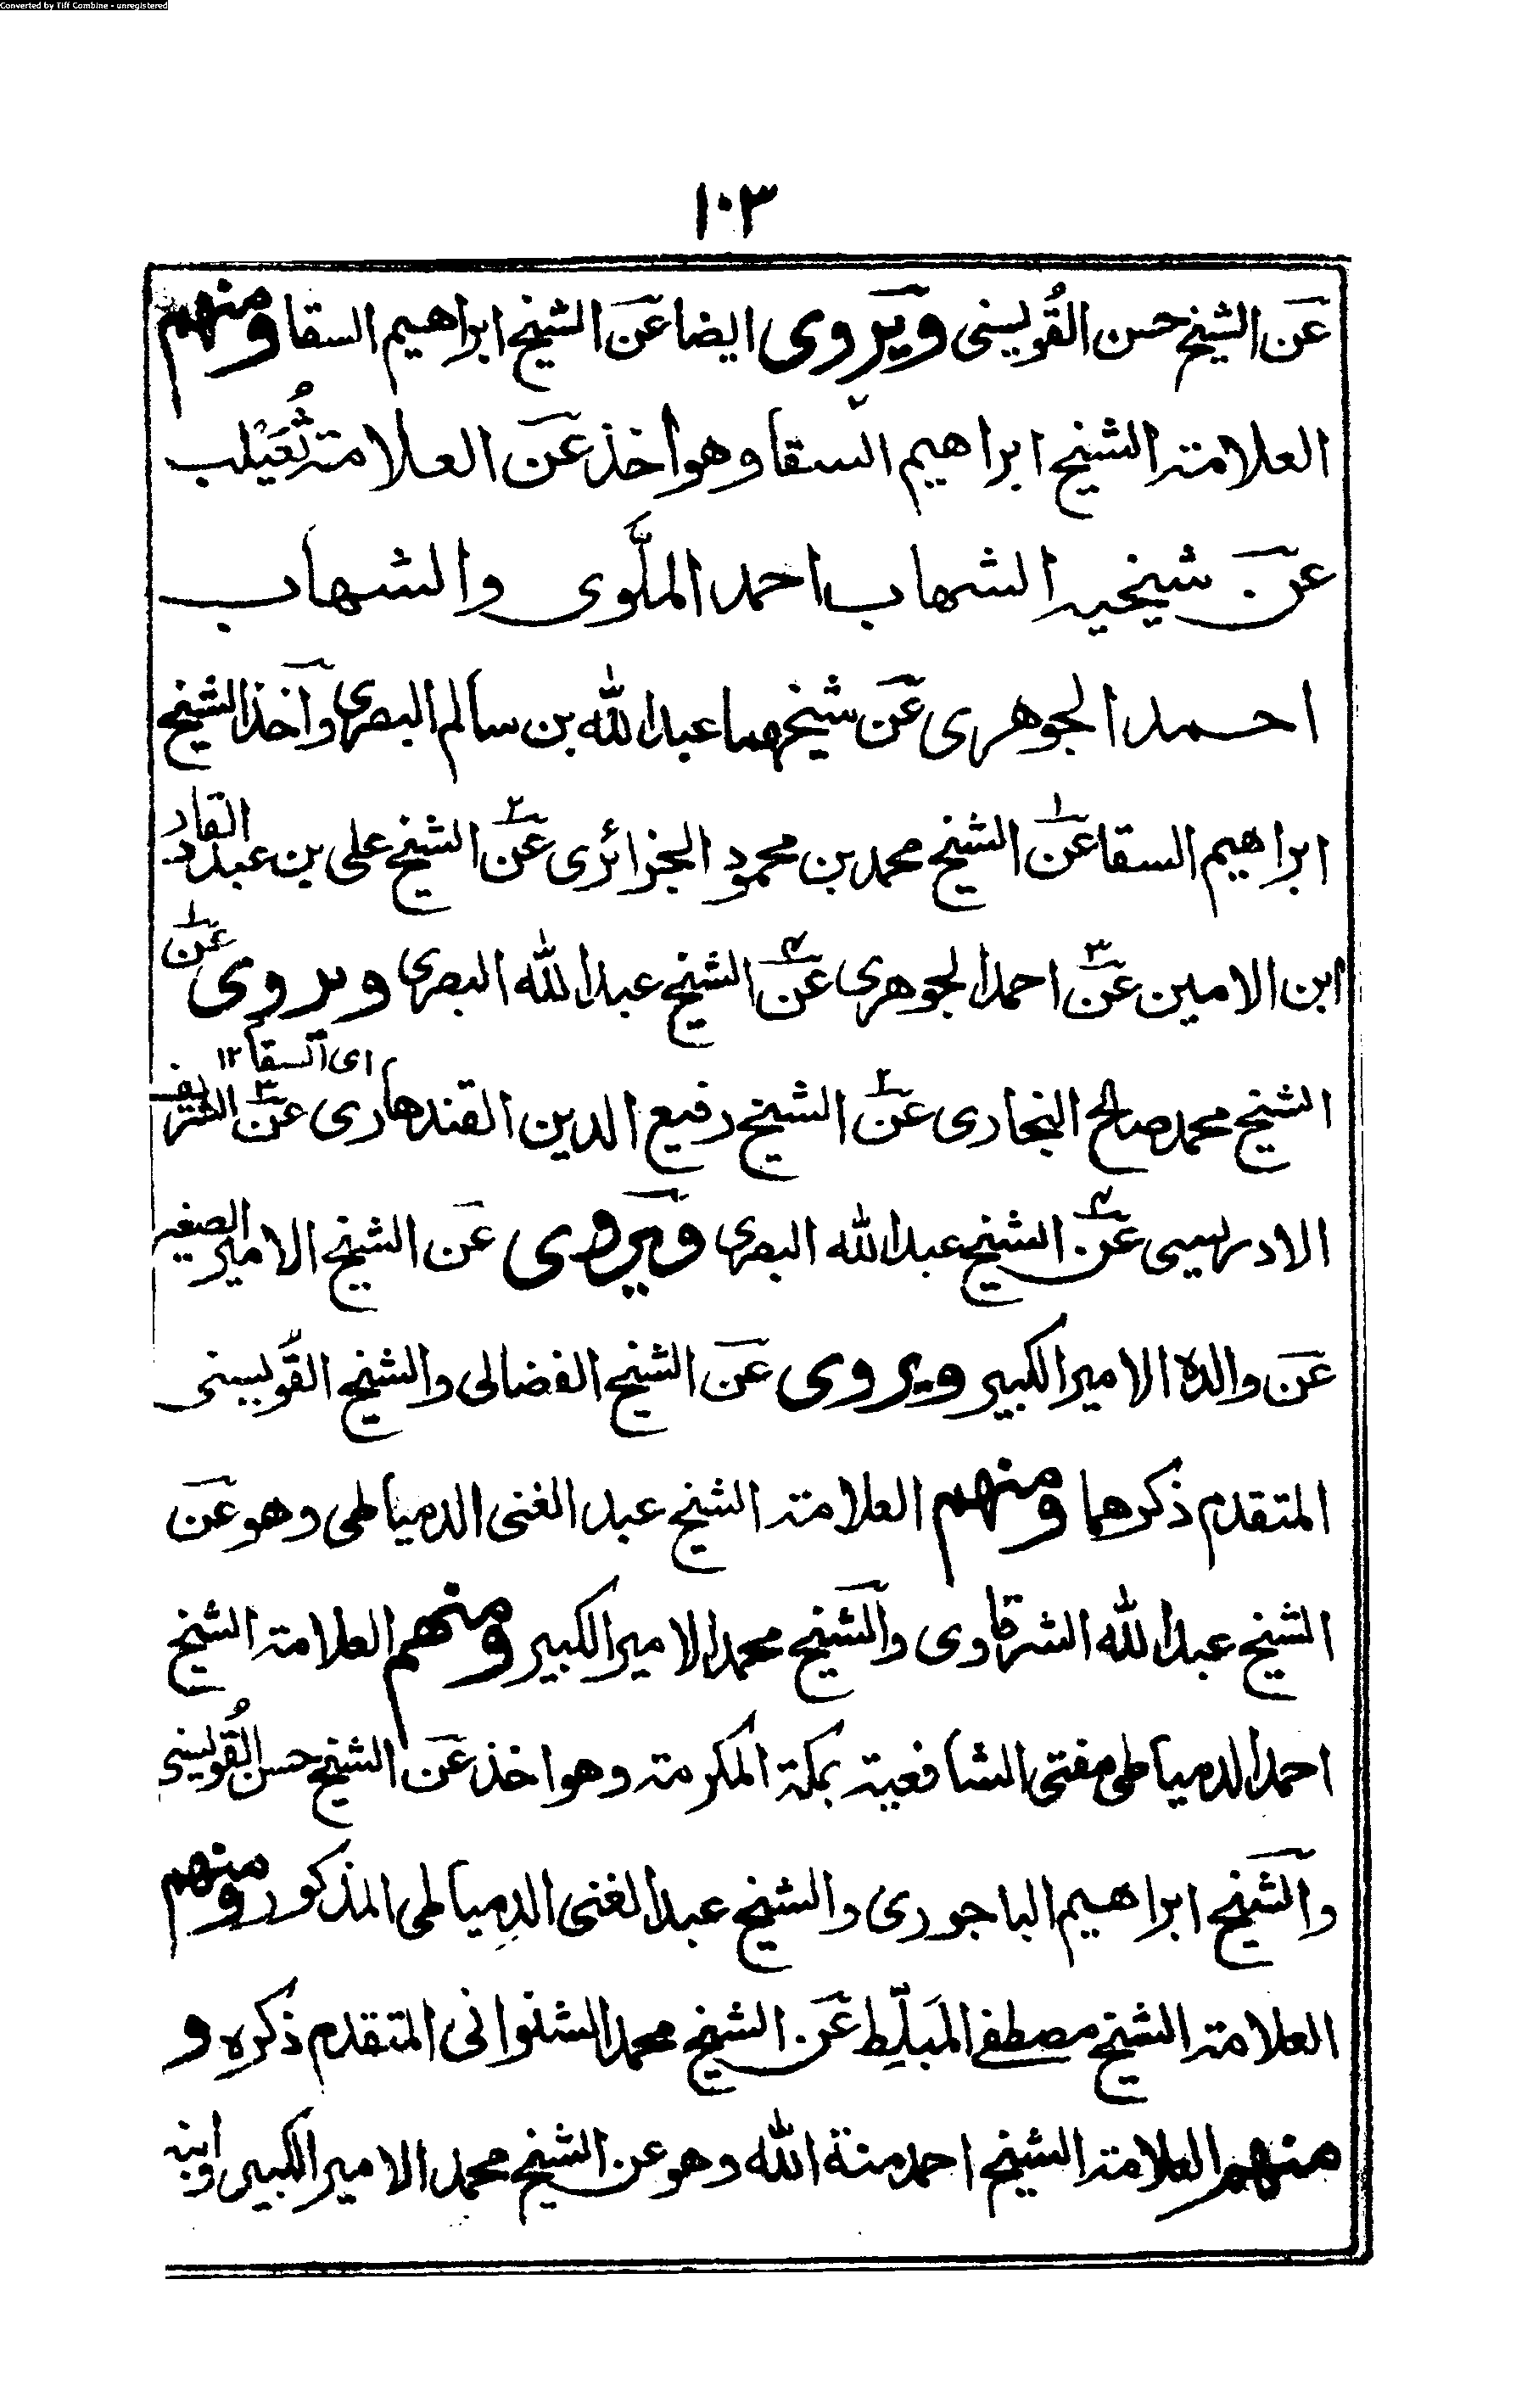 Converted by Tiff Combine - unregistered
١٠٣
عَن الشيخ حسن القُويسنى ويَروى ايضا عَن الشيخ ابراهيم السقا ومنهم
العلامة الشيخ ابراهيم السقا وهو اخذ عَن العلامة ثُعَيْلب
عَن شيخيه الشهاب احمد الملَّوى والشهاب
احمد الجوهرى عَن شيخهما عبد الله بن سالم البصرى وآخذ الشيخ
ابراهيم السقا عَن ١ الشيخ محمد بن محمود الجزائرى عَن ٢ الشيخ على بن عبد القادر
ابن الامين عَن ٣ احمد الجوهرى عَن ٤ الشيخ عبد الله البصرى ويروى عَن ١
اى السقا ١٢
الشيخ محمد صالح البخارى عَن ٢ الشيخ رفيع الدين القندهارى عَن ٣ الشريف
الادريسى عَن ٤ الشيخ عبد الله البصرى ويَروى عَن الشيخ الامير الصغير
عَن والده الامير الكبير ويروى عَن الشيخ الفضالى والشيخ القُويسنى
المتقدم ذكرهما ومنهم العلامة الشيخ عبد الغنى الدمياطى وهو عَن
الشيخ عبد الله الشرقاوى والشيخ محمد الامير الكبير ومنهم العلامة الشيخ
احمد الدمياطى مفتى الشافعية بمكة المكرمة وهو اخذ عَن الشيخ حسن القُويسنى
والشيخ ابراهيم الباجورى والشيخ عبد الغنى الدمياطى المذكور ومنهم
العلامة الشيخ مصطفے المَبلِّط عَن الشيخ محمد الشنوانى المتقدم ذكره و
منهم العلامة الشيخ احمد منة الله وهو عن الشيخ محمد الامير الكبير وابنه